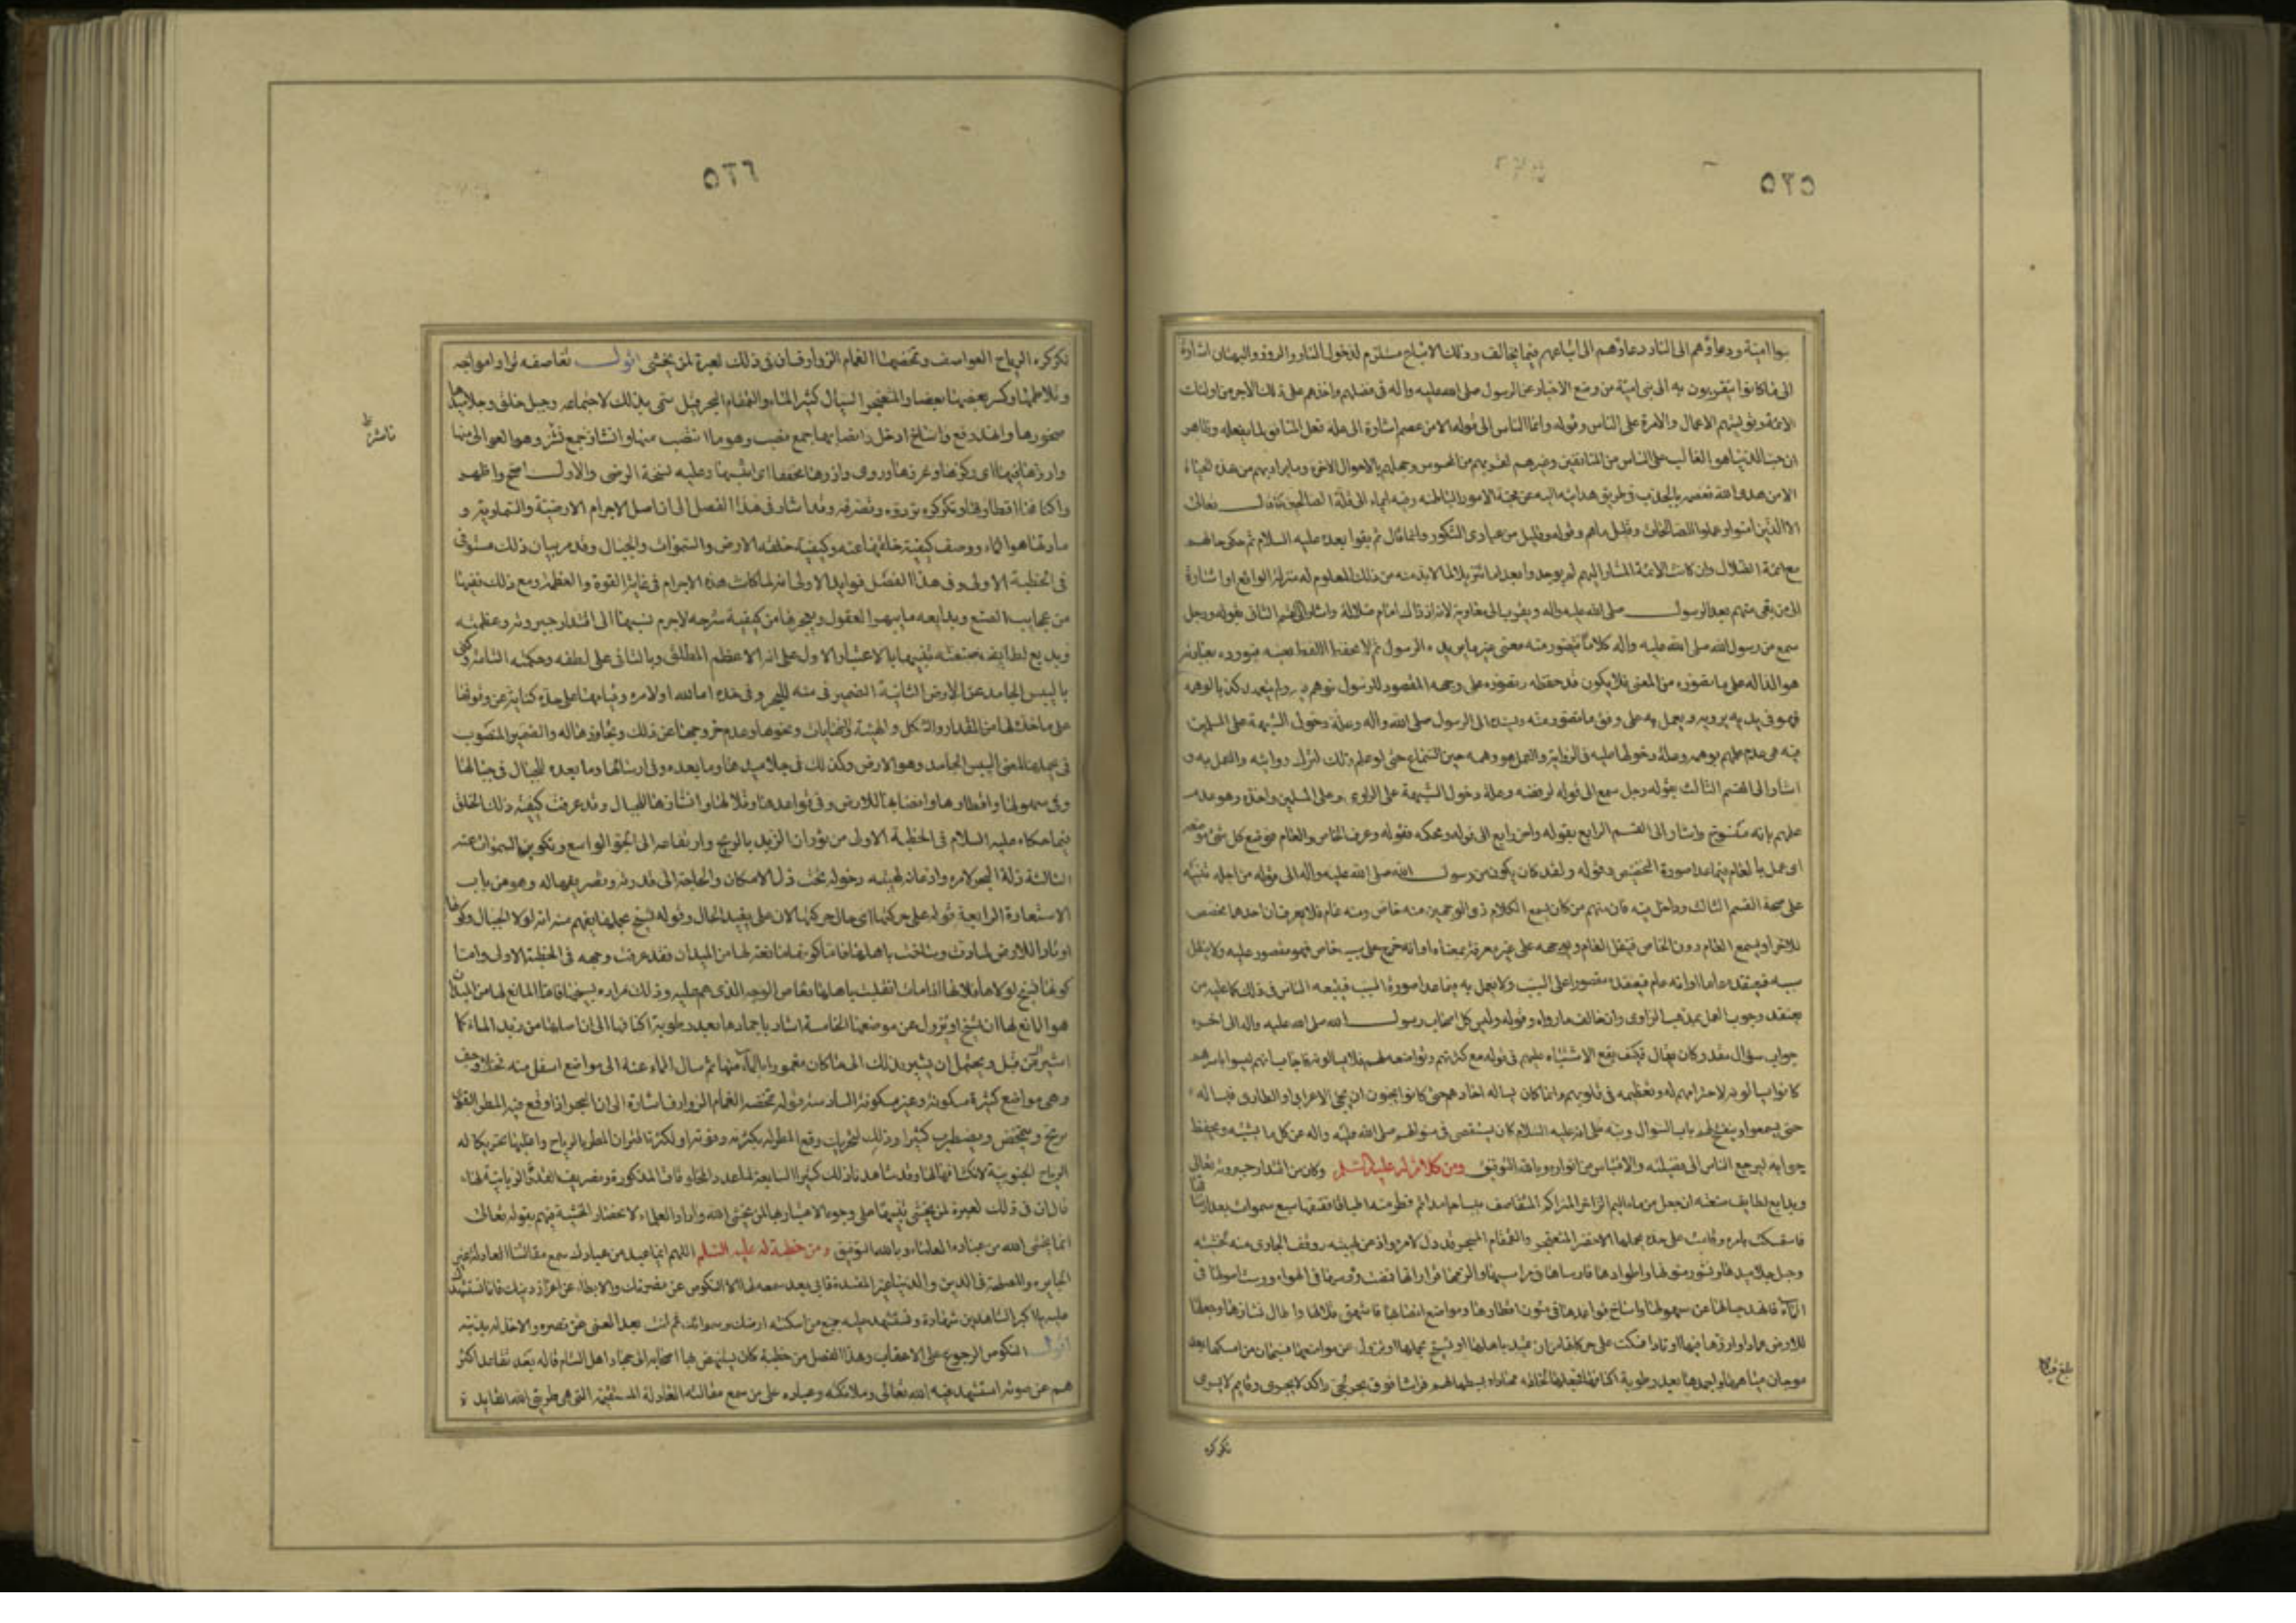 ٥٢٥
بنوا امية ودعاؤهم الى النار دعاؤهم الى اتباعهم فيما يخالف وذلك الاتباع مستلزم لدخول النار والزور والبهتان اشارة
الى ما كانوا يتقربون به الى بنى امية من وضع الاخبار عن الرسول صلى الله عليه واله فى فضلهم واخذهم على ذلك الاجر من اولئك
الائمة وتوليتهم الاعمال والامرة على الناس وقوله وانما الناس الى قوله الا من عصم اشارة الى علة فعل المنافق لما يفعله وظاهر
ان حب الدنيا هو الغالب على الناس من المنافقين وغيرهم لقربهم من المحسوس وجهلهم بالاحوال الاخرة وما يراد بهم من هذه الحياة
الا من هدى الله بالجذب فى طريق هدايته اليه عن محبة الامور الباطلة وفيه ايماء الى قلة الصالحين كما قال تعالى
الا الذين امنوا وعملوا الصالحات وقليل ماهم وقوله وقليل من عبادى الشكور وانما قال ثم بقوا بعده عليه السلام ثم حكى حالهم
مع ائمة الضلال وان كانت الائمة المشار اليهم لم يوجدوا بعد اما تنزيلا لما لابد منه من ذلك المعلوم له منزلة الواقع او اشارة
الى من بقى منهم بعد الرسول صلى الله عليه واله ويقرب الى معاوية لانه اذ ذاك امام ضلالة واشار الى القسم الثانى بقوله ورجل
سمع من رسول الله صلى الله عليه واله كلاما فتصور منه معنى غير ما يريده الرسول ثم لا يحفظ اللفظ بعينه فيورده بعبارته
هو الدالة على ما تصوره من المعنى فلا يكون قد حفظه وتصوره على وجهه المقصود للرسول فوهم فيه ولم يتعمد كذبا لوهمه
فهو فى يديه يرويه ويعمل به على وفق ما تصور منه ويسنده الى الرسول صلى الله عليه واله وعلة دخول الشبهة على المسلمين
فيه هى عدم علمهم بوهمه وعلة دخولها عليه فى الرواية والعمل هو وهمه حين السماع حتى لو علم ذلك لترك روايته والعمل به و
اشار الى القسم الثالث بقوله ورجل سمع الى قوله لرفضه وعلة دخول الشبهة على الراوى وعلى المسلمين واحدة وهو عدم
علمهم بانه منسوخ واشار الى القسم الرابع بقوله واخر رابع الى قوله ومحكمه فقوله وعرف الخاص والعام فوضع كل شئ موضعه
اى عمل بالعام فيما عدا صورة التخصيص وقوله ولقد كان يكون من رسول الله صلى الله عليه واله الى قوله من اجله تنبيه
على صحة القسم الثالث وداخل فيه فان منهم من كان يسمع الكلام ذو الوجهين منه خاص ومنه عام فلا يعرف ان احدهما مخصص
للاخر او يسمع العام دون الخاص فينقل العام ويوجهه على غير معرفة بمعناه او انه خرج على سبب خاص فهو مقصور عليه ولا ينقل
سببه فيعتقده عاما او انه عام فيعتقده مقصورا على السبب ولا يعمل به فيما عدا صورة السبب فيتبعه الناس فى ذلك
وقوله وليس كل اصحاب رسول الله صلى الله عليه واله الى اخره
جواب سؤال مقدر كان يقال فكيف يقع الاشتباه عليهم فى قوله مع كثرتهم وتواضعه لهم فلا يسالونه فاجاب بانهم ليسوا باسرهم
كانوا يسالونه لاحترامهم له وتعظيمه فى قلوبهم وانما كان يساله احادهم حتى كانوا يحبون ان يجئ الاعرابى او الطارى فيساله
حتى يسمعوا وينفتح لهم باب السؤال ونبه على انه عليه السلام كان يستقصى فى سؤالهم صلى الله عليه واله عن كل ما يشتبه ويحفظ
جوابه ليرجع الناس الى فضيلته والاقتباس من انواره وبالله التوفيق ومن كلام له عليه السلم وكان من اقتدار جبروته تعالى
وبديع لطايف صنعته ان جعل من ماء اليم الزاخر المتراكم المتقاصف يبسا جامدا ثم فطر منه اطباقا ففتقها سبع سموات بعد ارتتاقها
فاستمسكت بامره وقامت على حده يحملها الاخضر المثعنجر والقمقام المسجر قد ذل لامره واذعن لهيبته ووقف الجارى منه لخشيته
وجبل جلاميدها ونشوز متونها واطوادها فارساها فى مراسيها والزمها قراراتها فمضت رؤسها فى الهواء ورست اصولها فى
الماء فانهد جبالها عن سهولها واساخ قواعدها فى متون اقطارها ومواضع انصابها فاشهق قلالها واطال نشازها وجعلها
للارض عمادا وارزها فيها اوتادا فسكنت على حركتها من ان تميد باهلها او تسيخ بحملها او تزول عن مواضعها فسبحان من امسكها بعد
موجان مياهها واجمدها بعد رطوبة اكنافها فجعلها لخلقه مهادا وبسطها لهم فراشا فوق بحر لجى راكد لا يجرى وقايم لا يسرى
تكركره
٥٢٦
تكركره الرياح العواصف وتمخضها الغمام الذوارف ان فى ذلك لعبرة لمن يخشى اقول تقاصفه تراد امواجه
وتلاطمها وكسر بعضها بعضا والمثعنجر السيال كثير الماء والقمقام البحر قيل سمى بذلك لاجتماعه وجبل خلق وجلاميدها
صخورها وانهد رفع واساخ ادخل وانصابها جمع نصب وهو ما انتصب منها وانشاز جمع نشز وهو العوالى منها
وارزها فيها اى ركزها وغرزها وروى وارزها مخففا اى اثبتها وعليه نسخة الرضى والاول اصح واظهر
واكنافها اقطارها وتكركره تردده وتصرفه وقد اشار فى هذا الفصل الى ان اصل الاجرام الارضية والسماوية و
مادتها هو الماء ووصف كيفية خلقها عنه وكيفية خلقه الارض والسموات والجبال وقد مر بيان ذلك مستوفى
فى الخطبة الاولى وفى هذا الفصل فوايد الاولى انه لما كانت هذه الاجرام فى غاية القوة والعظمة ومع ذلك ففيها
من عجايب الصنع وبدايعه ما يبهر العقول ويعجزها من كيفية شرحه لاجرم نسبها الى اقتدار جبروته وعظمته
وبديع لطايف صنعته تنبيها بالاعتبار الاول على انه الاعظم المطلق وبالثانى على لطفه وحكمته التامة وكنى
باليبس الجامد عن الارض الثانية الضمير فى منه لليم وفى حده اما لله او لامره وقيامها على حده كناية عن وقوفها
على ما حد لها من المقدار والشكل والهيئة والنهايات ونحوها وعدم خروجها عن ذلك وتجاوزها له والضمير المنصوب
فى يحملها لمعنى اليبس الجامد وهو الارض وكذلك فى جلاميدها وما بعده وفى ارساها وما بعده للجبال فى جبالها
وفى سهولها واقطارها وانصابها للارض وفى قواعدها وقلالها وانشازها للجبال وقد عرفت كيفية ذلك الخلق
فيما حكاه عليه السلام فى الخطبة الاولى من ثوران الزبد بالريح وارتفاعه الى الجو الواسع وتكوين السموات عنه
الثالثة ذلة البحر لامره واذعانه لهيبته دخوله تحت ذل الامكان والحاجة الى قدرته وتصريفها له وهو من باب
الاستعارة الرابعة قوله على حركتها اى حال حركتها لان على يفيد الحال وقوله تسيخ بحملها يفهم منه انه لولا الجبال وكونها
اوتادا للارض لمادت وساخت باهلها فاما كونها مانعة لها من الميدان فقد عرفت وجهه فى الخطبة الاولى واما
كونها تسيخ لولاها فلانها اذا مادت انقلبت باهلها فغاص الوجه الذى هم عليه وذلك مراده بسيخها فاذا المانع لها من الميدان
هو المانع لها ان تسيخ او تزول عن موضعها الخامسة اشار باجمادها بعد رطوبة اكنافها الى ان اصلها من زبد الماء كما
اشير اليه من قبل ويحتمل ان يشير بذلك الى ما كان مغمورا بالماء منها ثم سال الماء عنه الى مواضع اسفل منه فخلا وجف
وهى مواضع كثيرة مسكونة وغير مسكونة السادسة قوله تمخضه الغمام الذوارف اشارة الى ان البحر اذا وقع فيه المطر
يرتج ويتمخض ويضطرب كثيرا وذلك لتحريك وقع المطر له بكثرته وقوته او لكثرة اقتران المطر بالرياح واغلبها تحريكا له
الرياح الجنوبية لانكشافها لها وقد شاهدنا ذلك كثيرا السابعة لما عدد المخلوقات المذكورة وتصريف القدرة الربانية لها
قال ان فى ذلك لعبرة لمن يخشى تنبيها على وجوه الاعتبار بها لمن يخشى الله واراد العلماء لانحصار الخشية فيهم بقوله تعالى
انما يخشى الله من عباده العلماء وبالله التوفيق ومن خطبة له عليه السلم اللهم ايما عبد من عبادك سمع مقالتنا العادلة غير
الجايرة والمصلحة فى الدين والدنيا غير المفسدة فابى بعد سمعه لها الا النكوص عن نصرتك والابطاء عن اعزاز دينك فانا نستشهدك
عليه يا اكبر الشاهدين شهادة ونستشهد عليه جميع من اسكنته ارضك وسمواتك ثم انت بعد المغنى عن نصره والاخذ له بذنبه
اقول النكوص الرجوع على الاعقاب وهذا الفصل من خطبة كان يستنهض بها اصحابه الى جهاد اهل الشام قاله بعد تقاعد اكثر
هم عن صوته استشهد فيه الله تعالى وملائكته وعباده على من سمع مقالته العادلة المستقيمة التى هى طريق الله القايد